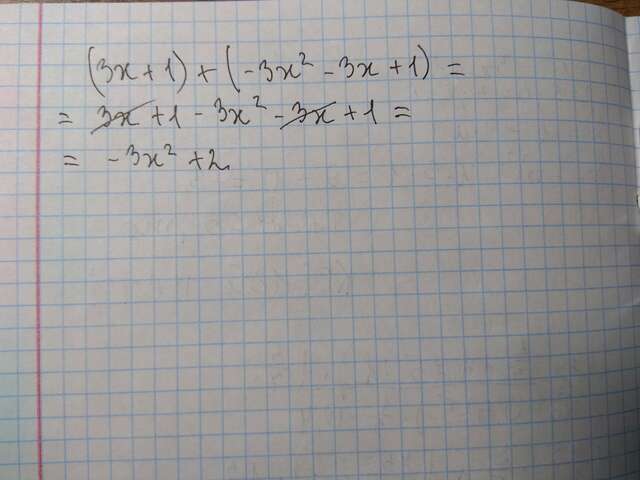 (3x + 1) + (-3x² - 3x + 1) =
= 3x + 1 - 3x² - 3x + 1 =
= -3x² + 2.